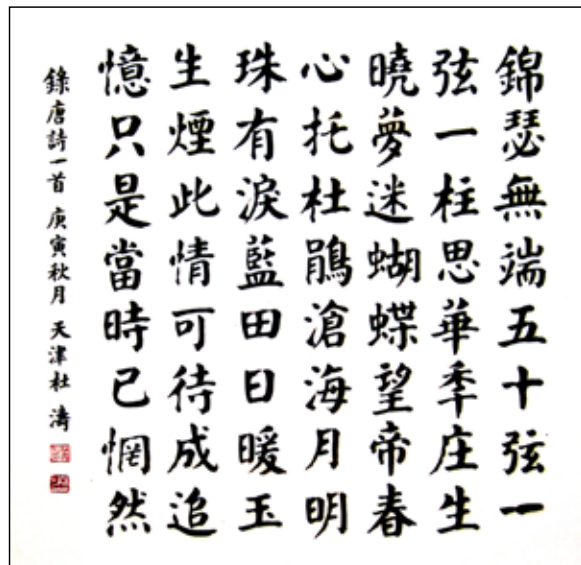 錦瑟無端五十弦一
弦一柱思華秊庄生
曉夢迷蝴蝶望帝春
心托杜鵑滄海月明
珠有淚藍田日暖玉
生煙此情可待成追
憶只是當時已惘然
錄唐詩一首 庚寅秋月 天津杜濤